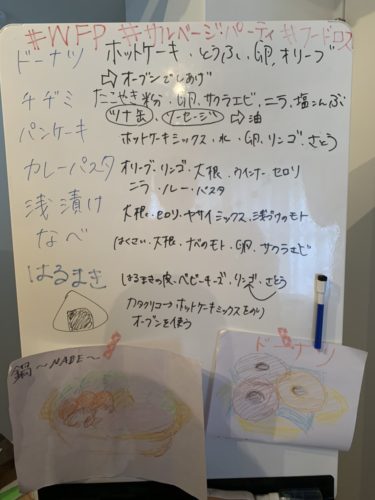 #WFP #サルベージ・パーティ #フードロス
ドーナツ ホットケーキ・とうふ・GP.オリーブ
⇨オーブンでしあげ
チヂミ たこやき粉・GP.サクラエビ・ニラ・塩こんぶ
ツナ缶・ソーセージ ⇨ 油
パンケーキ ホットケーキミックス・水・GP.リンゴ・さとう
カレーパスタ オリーブ・リンゴ・大根・ウインナー・セロリ
ニラ・ルー・パスタ
浅漬け 大根・セロリ・ヤサイミックス・浅づけのモト
なべ はくさい・大根・ナベのモト・GP.サクラエビ
はるまき はるまきの皮・ベビーチーズ・リンゴ・さとう
カタクリコ→ホットケーキミックスを
オーブンを使う
鍋〜NABE〜
ドーナツ